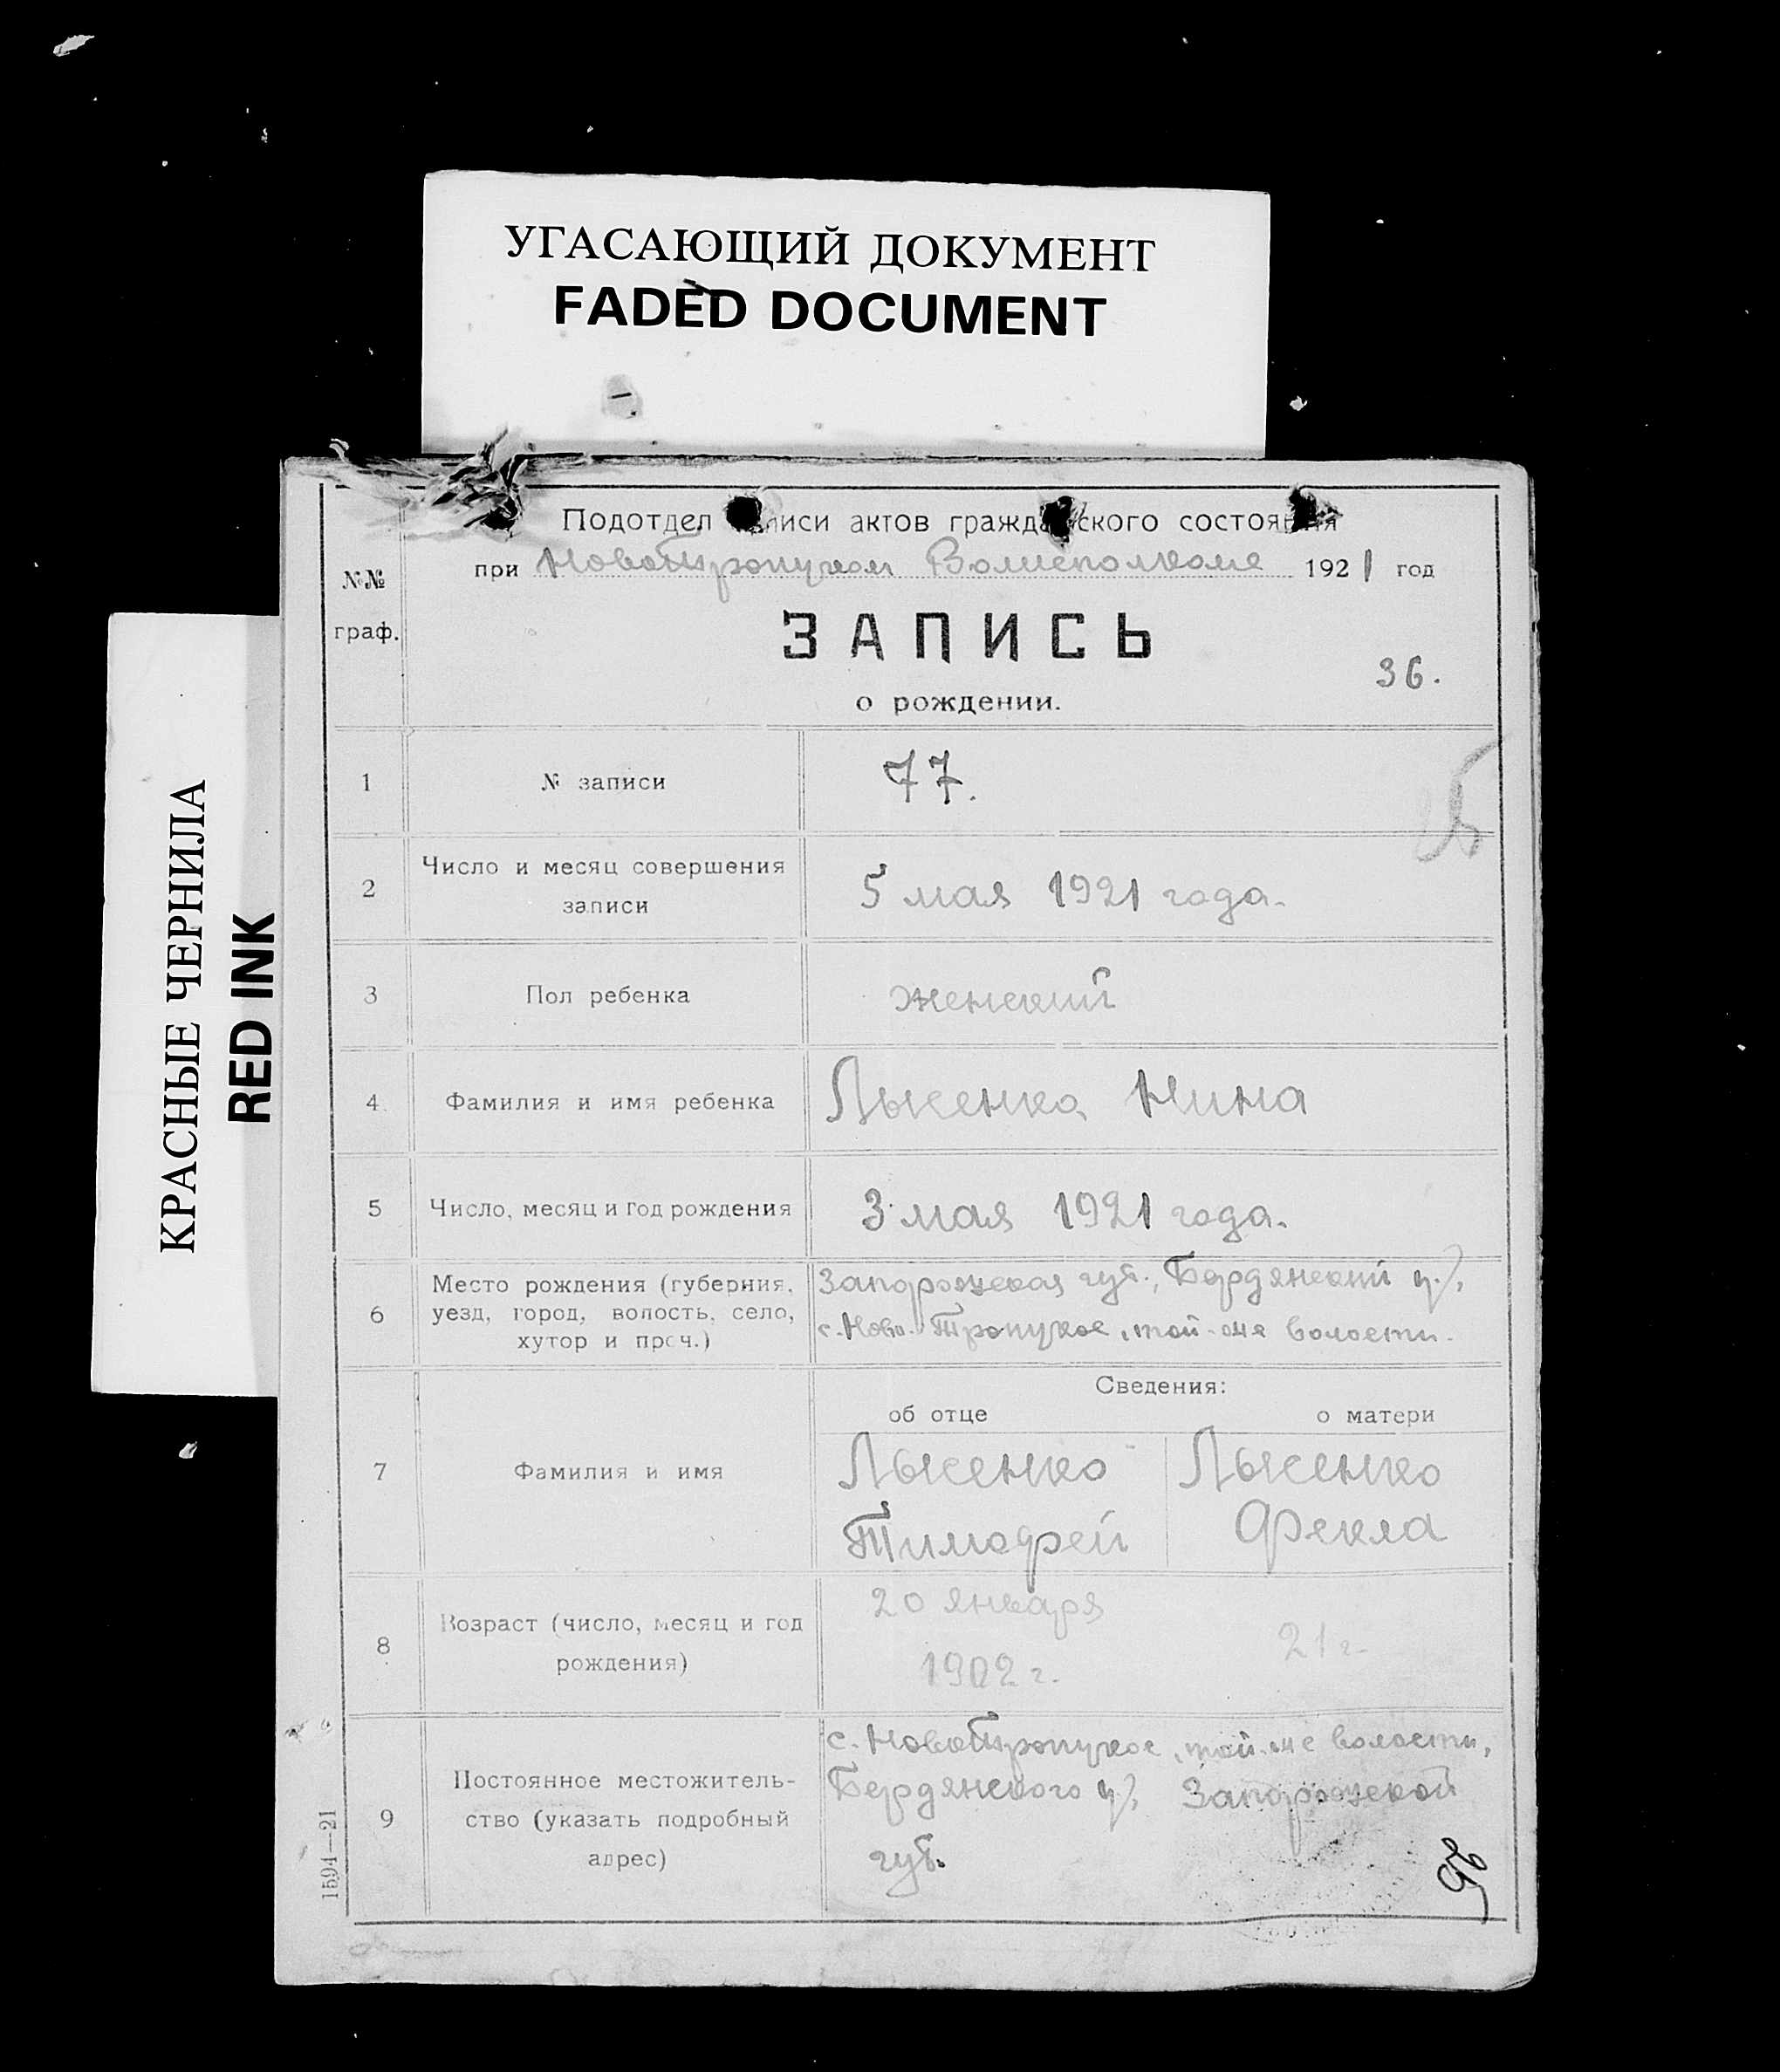 УГАСАЮЩИЙ ДОКУМЕНТ
FADED DOCUMENT
КРАСНЫЕ ЧЕРНИЛА
RED INK
Подотдел записи актов гражданского состояния
при НовоТроицком Волисполкоме 1921 год
№№
граф.
ЗАПИСЬ
36.
о рождении.
1 № записи 77.
2 Число и месяц совершения
записи
5 мая 1921 года.
3 Пол ребенка женский
4 Фамилия и имя ребенка Лысенко Нина
5 Число, месяц и год рождения 3 мая 1921 года.
6 Место рождения (губерния,
уезд, город, волость, село,
хутор и проч.)
Запорожская губ., Бердянский у.,
с. Ново-Троицкое, той-же волости.
Сведения:
об отце о матери
7 Фамилия и имя
Лысенко Лысенко
Тимофей Фекла
8 Возраст (число, месяц и год
рождения)
20 января
1902 г.
21 г.
9 Постоянное местожитель-
ство (указать подробный
адрес)
с. НовоТроицкое, той-же волости,
Бердянского у., Запорожской
губ.
1594—21